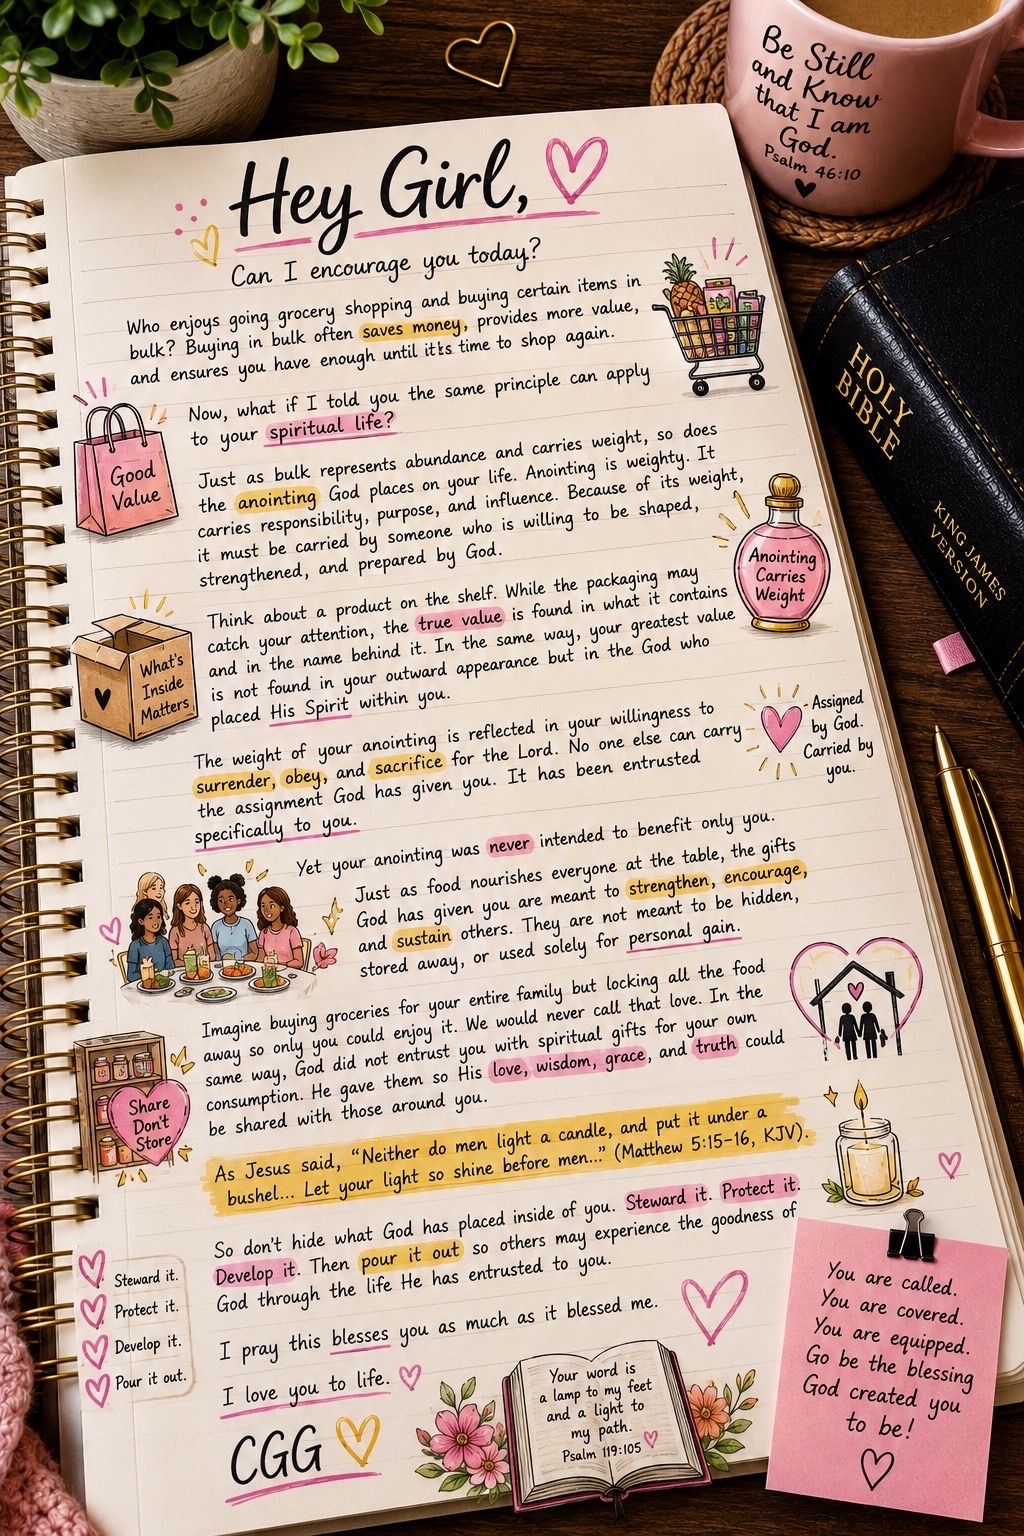 Be Still
and Know
that I am
God.
Psalm 46:10
Hey Girl,
Can I encourage you today?
Who enjoys going grocery shopping and buying certain items in
bulk? Buying in bulk often saves money, provides more value,
and ensures you have enough until it's time to shop again.
Now, what if I told you the same principle can apply
to your spiritual life?
Good
Value
Just as bulk represents abundance and carries weight, so does
the anointing God places on your life. Anointing is weighty. It
carries responsibility, purpose, and influence. Because of its weight,
it must be carried by someone who is willing to be shaped,
strengthened, and prepared by God.
Anointing
Carries
Weight
HOLY
BIBLE
KING JAMES
VERSION
Think about a product on the shelf. While the packaging may
catch your attention, the true value is found in what it contains
and in the name behind it. In the same way, your greatest value
is not found in your outward appearance but in the God who
placed His Spirit within you.
What's
Inside
Matters
The weight of your anointing is reflected in your willingness to
surrender, obey, and sacrifice for the Lord. No one else can carry
the assignment God has given you. It has been entrusted
specifically to you.
Assigned
by God.
Carried by
you.
Yet your anointing was never intended to benefit only you.
Just as food nourishes everyone at the table, the gifts
God has given you are meant to strengthen, encourage,
and sustain others. They are not meant to be hidden,
stored away, or used solely for personal gain.
Imagine buying groceries for your entire family but locking all the food
away so only you could enjoy it. We would never call that love. In the
same way, God did not entrust you with spiritual gifts for your own
consumption. He gave them so His love, wisdom, grace, and truth could
be shared with those around you.
Share
Don't
Store
As Jesus said, "Neither do men light a candle, and put it under a
bushel... Let your light so shine before men..." (Matthew 5:15-16, KJV).
So don't hide what God has placed inside of you. Steward it. Protect it.
Develop it. Then pour it out so others may experience the goodness of
God through the life He has entrusted to you.
Steward it.
Protect it.
Develop it.
Pour it out.
I pray this blesses you as much as it blessed me.
I love you to life.
CGG
Your word is
a lamp to my feet
and a light to
my path.
Psalm 119:105
You are called.
You are covered.
You are equipped.
Go be the blessing
God created you
to be!